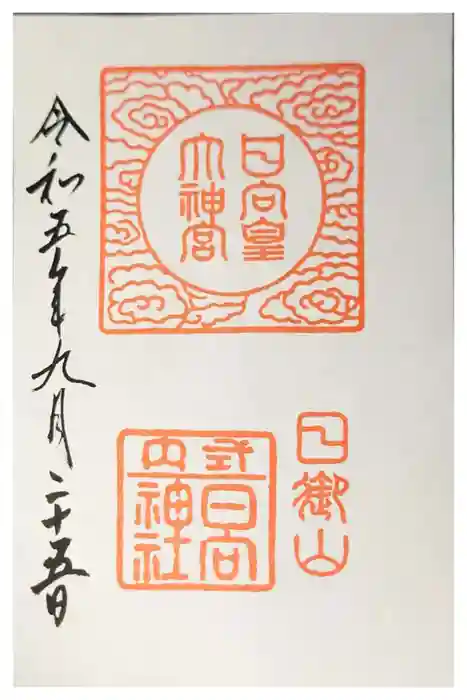 日向皇
大神宮
日御山
式日向
内神社
令和五年九月二十五日